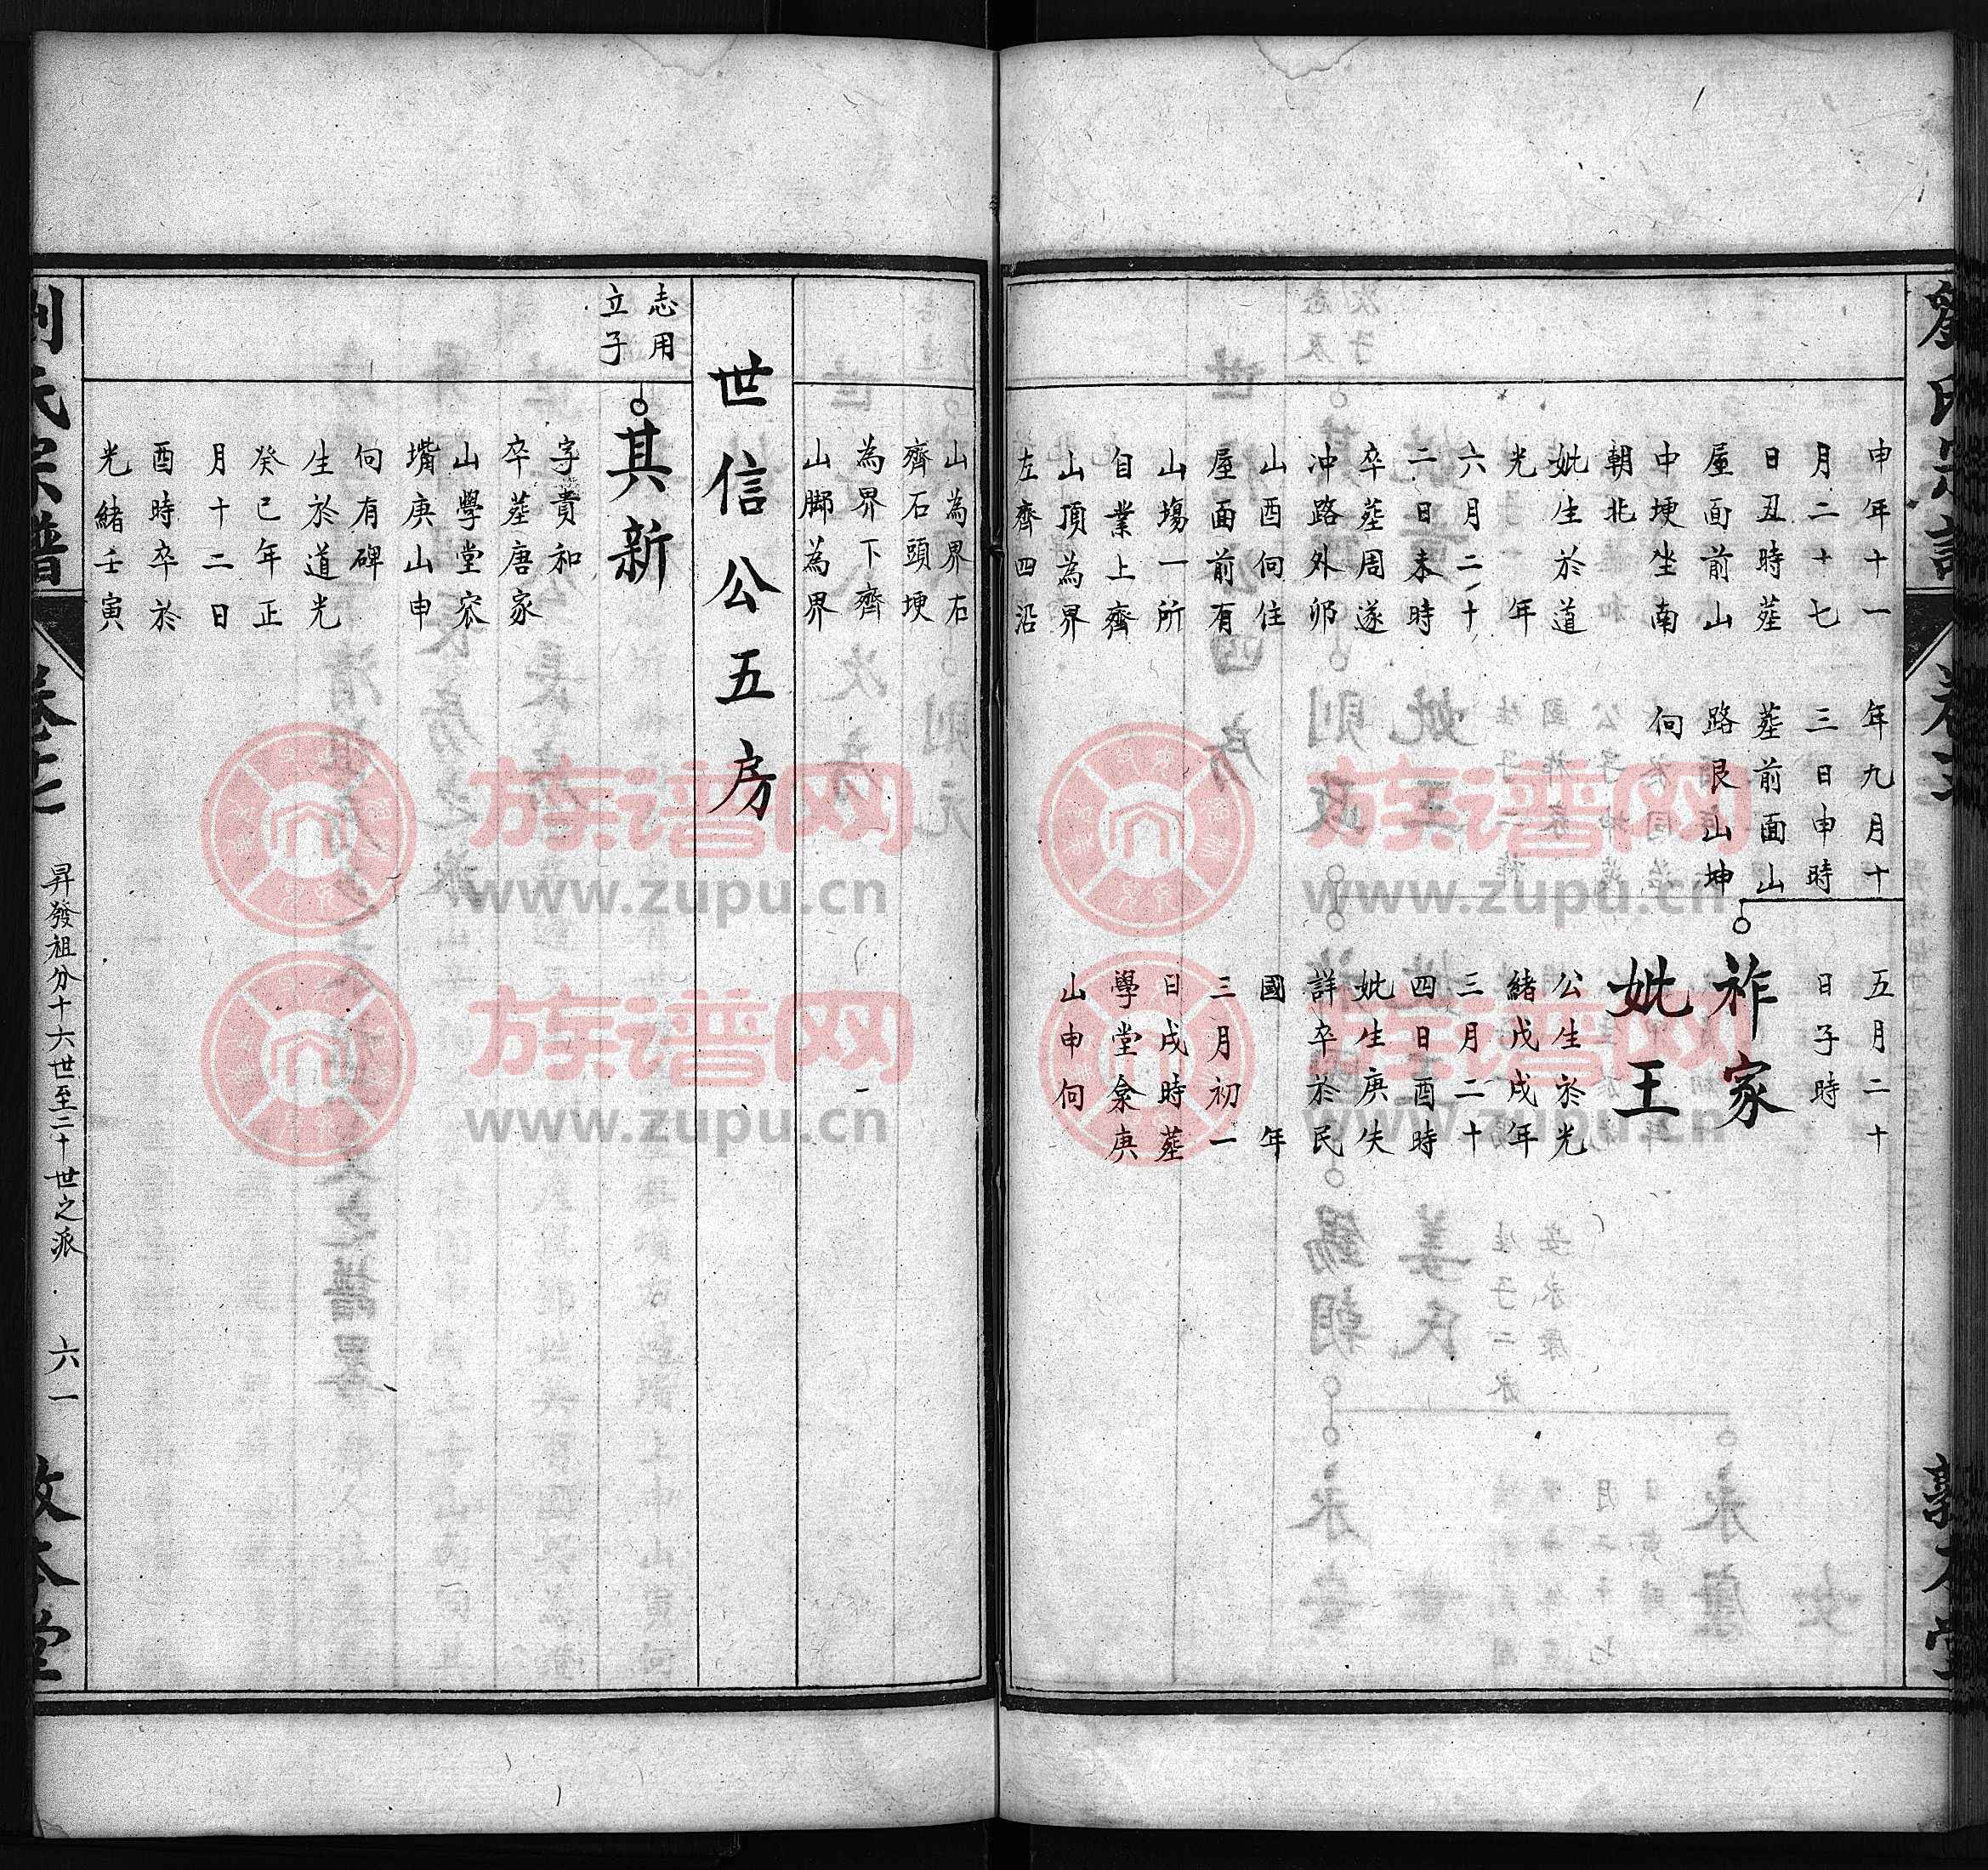 申年十一
月二十七
日丑時塟
屋面前山
中埂坐南
朝北
妣生於道
光年
六月二十
二日未時
卒塟周遂
冲路外卯
山酉向住
屋面前有
山塲一所
自業上齊
山頂為界
左齊四沿
年九月十
三日申時
塟前面山
路艮山坤
向
五月二十
日子時
祚家
妣王
公生於光
緒戊戌年
三月二十
四日酉時
妣生庚失
詳卒於民
國年
三月初一
日戌時塟
學堂衆庚
山申向
山為界右
齊石頭埂
為界下齊
山脚為界
世信公五房
志用
立子
其新
字貴和
卒塟唐家
山學堂窊
嘴庚山申
向有碑
生於道光
癸巳年正
月十二日
酉時卒於
光緒壬寅
劉氏宗譜
昇發祖分十六世至二十世之派
六一
敦本堂
族谱网
www.zupu.cn
族谱网
www.zupu.cn
族谱网
www.zupu.cn
族谱网
www.zupu.cn